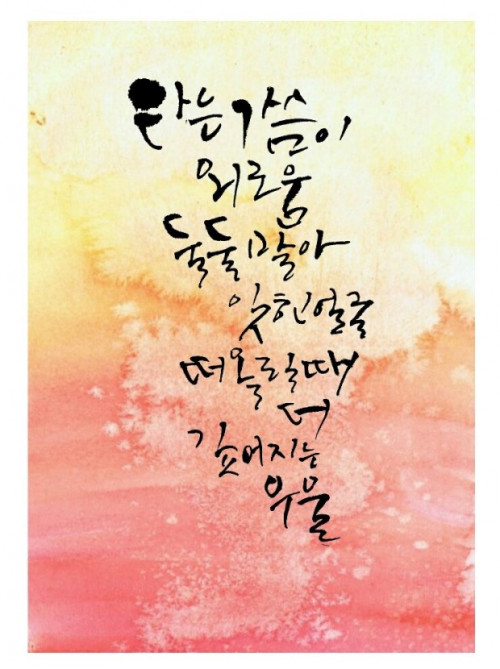 가슴이
외로움
둘둘 말아
잊힌 얼굴
떠올릴 때
더
깊어지는
우울